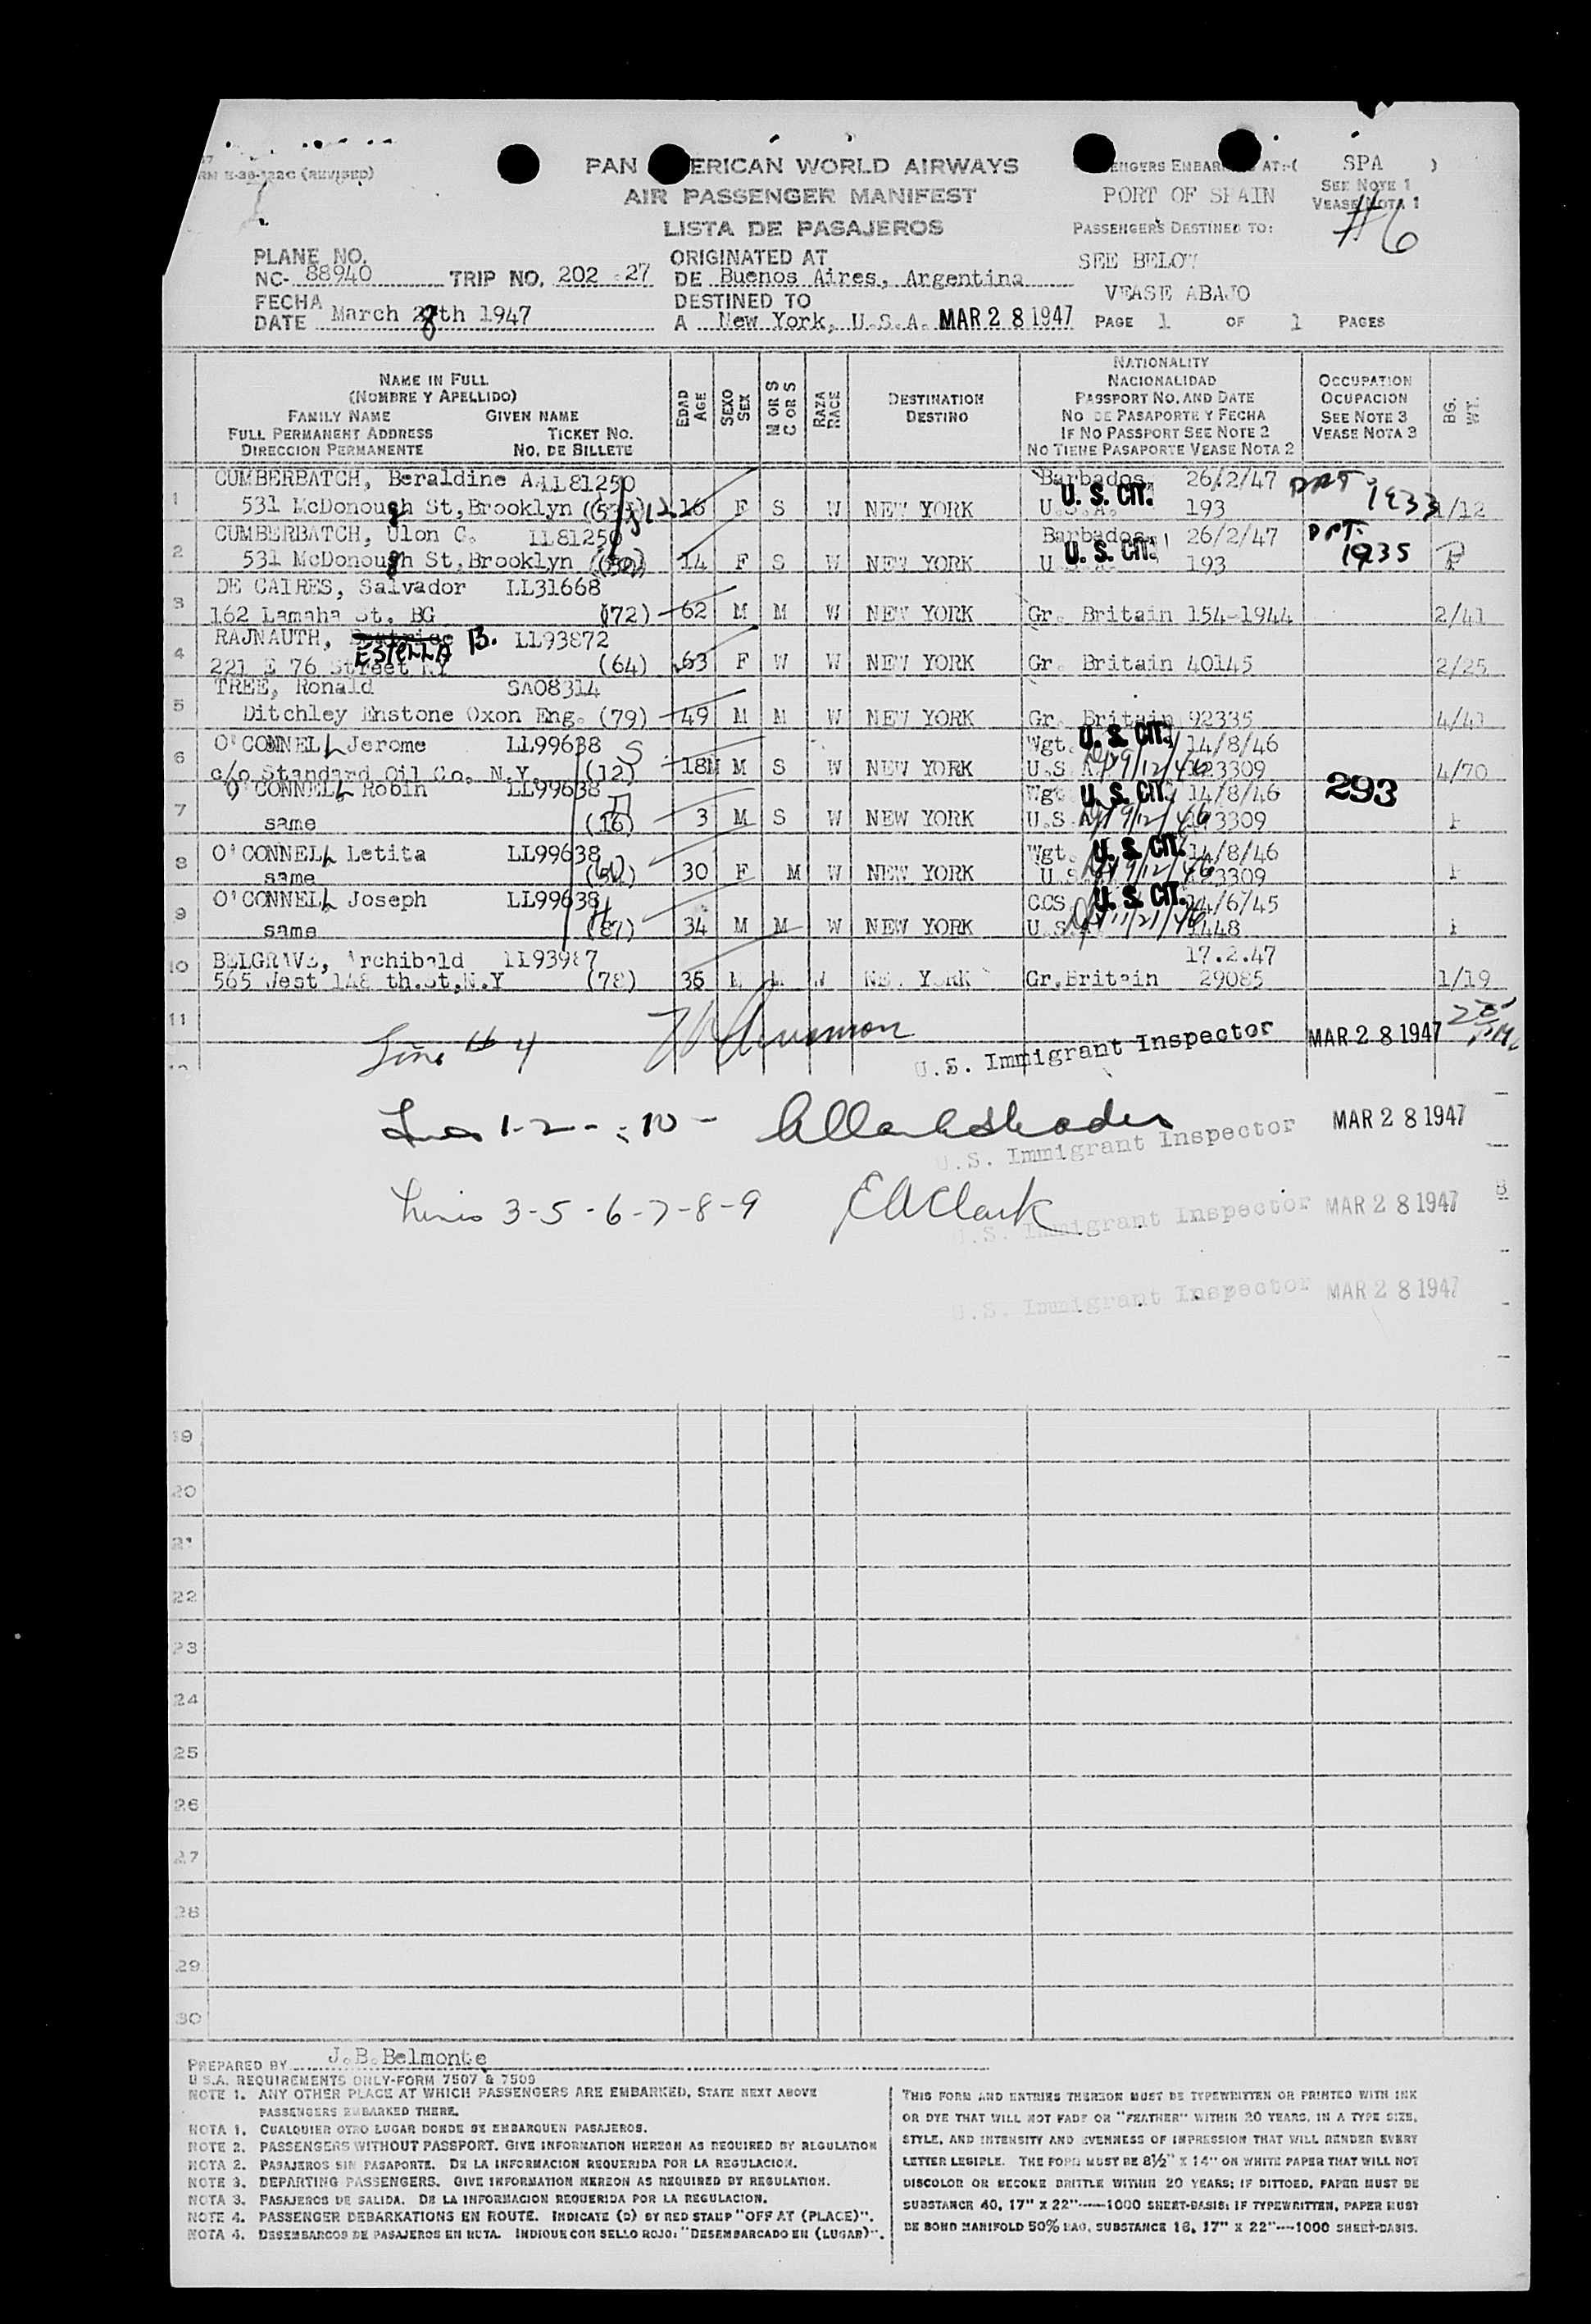 (REVISED)
PAN ERICAN WORLD AIRWAYS
AIR PASSENGER MANIFEST
LISTA DE PASAJEROS
ENGERS EMBAR AT:-( SPA )
SEE NOTE 1
VEASE NOTA 1
PORT OF SPAIN
#6
PASSENGERS DESTINED TO:
SEE BELOW
VEASE ABAJO
PLANE NO.
NC- 88940 TRIP NO. 202 -27
ORIGINATED AT
DE Buenos Aires, Argentina
FECHA
DATE March 28th 1947
DESTINED TO
A New York, U.S.A. MAR 28 1947
PAGE 1 OF 1 PAGES
NAME IN FULL
(NOMBRE Y APELLIDO)
FAMILY NAME GIVEN NAME
FULL PERMANENT ADDRESS TICKET NO.
DIRECCION PERMANENTE NO. DE BILLETE
EDAD AGE
SEXO SEX
M OR S
C OR S
RAZA RACE
DESTINATION
DESTINO
NATIONALITY
NACIONALIDAD
PASSPORT NO. AND DATE
NO. DE PASAPORTE Y FECHA
IF NO PASSPORT SEE NOTE 2
NO TIENE PASAPORTE VEASE NOTA 2
OCCUPATION
OCUPACION
SEE NOTE 3
VEASE NOTA 3
BG. WT.
1 CUMBERBATCH, Beraldine A. LL81250 Barbados, 26/2/47 DPT 1933
531 McDonough St, Brooklyn 16 F S W NEW YORK U.S.A. U. S. CIT. 193 1/12
2 CUMBERBATCH, Ulon C. LL81250 Barbados, 26/2/47 DPT. 1935
531 McDonough St, Brooklyn 14 F S W NEW YORK U. S. CIT. 193 P
3 DE CAIRES, Salvador LL31668
162 Lamaha St. BG (72) 62 M M W NEW YORK Gr. Britain 154-1944 2/41
4 RAJNAUTH, ESTELLA B. LL93872
221 E 76 Street NY (64) 63 F W W NEW YORK Gr. Britain 40145 2/25
5 TREE, Ronald SA08314
Ditchley Enstone Oxon Eng. (79) 49 M M W NEW YORK Gr. Britain 92335 4/41
6 O'CONNELL Jerome LL99638 S Wgt. U. S. CIT. 14/8/46
c/o Standard Oil Co. N.Y. (12) 18M M S W NEW YORK U.S.A. 9/12/46 123309 4/70
293
7 O'CONNELL Robin LL99638 Wgt. U. S. CIT. 14/8/46
same (16) 3 M S W NEW YORK U.S. 9/12/46 3309
8 O'CONNELL Letita LL99638 Wgt. U. S. CIT. 14/8/46
same 30 F M W NEW YORK U.S. 9/12/46 3309
9 O'CONNELL Joseph LL99638 CCS U. S. CIT. 4/6/45
same (87) 34 M M W NEW YORK U.S. 11/21/46 1448
17.2.47
10 BELGRAVE, Archibald LL93987
565 West 148 th.St,N.Y (78) 35 NEW YORK Gr.Britain 29085 1/19
11
Line # 4 U.S. Immigrant Inspector MAR 28 1947
Lines 1-2- 10 - U.S. Immigrant Inspector MAR 28 1947
Lines 3-5-6-7-8-9 EA Clark U.S. Immigrant Inspector MAR 28 1947
U.S. Immigrant Inspector MAR 28 1947
19
20
21
22
23
24
25
26
27
28
29
30
PREPARED BY J.B.Belmonte
U.S.A. REQUIREMENTS ONLY-FORM 7507 & 7509
NOTE 1. ANY OTHER PLACE AT WHICH PASSENGERS ARE EMBARKED, STATE NEXT ABOVE
PASSENGERS EMBARKED THERE.
NOTA 1. CUALQUIER OTRO LUGAR DONDE SE EMBARQUEN PASAJEROS.
NOTE 2. PASSENGERS WITHOUT PASSPORT. GIVE INFORMATION HEREON AS REQUIRED BY REGULATION
NOTA 2. PASAJEROS SIN PASAPORTE. DE LA INFORMACION REQUERIDA POR LA REGULACION.
NOTE 3. DEPARTING PASSENGERS. GIVE INFORMATION HEREON AS REQUIRED BY REGULATION.
NOTA 3. PASAJEROS DE SALIDA. DE LA INFORMACION REQUERIDA POR LA REGULACION.
NOTE 4. PASSENGER DEBARKATIONS EN ROUTE. INDICATE (D) BY RED STAMP "OFF AT (PLACE)".
NOTA 4. DESEMBARCOS DE PASAJEROS EN RUTA. INDIQUE CON SELLO ROJO: "DESEMBARCADO EN (LUGAR)".
THIS FORM AND ENTRIES THEREON MUST BE TYPEWRITTEN OR PRINTED WITH INK
OR DYE THAT WILL NOT FADE OR "FEATHER" WITHIN 20 YEARS, IN A TYPE SIZE,
STYLE, AND INTENSITY AND EVENNESS OF IMPRESSION THAT WILL RENDER EVERY
LETTER LEGIBLE. THE FORM MUST BE 8½" X 14" ON WHITE PAPER THAT WILL NOT
DISCOLOR OR BECOME BRITTLE WITHIN 20 YEARS; IF DITTOED, PAPER MUST BE
SUBSTANCE 40, 17" X 22"----1000 SHEET-BASIS; IF TYPEWRITTEN, PAPER MUST
BE BOND MANIFOLD 50% RAG, SUBSTANCE 16, 17" X 22"----1000 SHEET-BASIS.